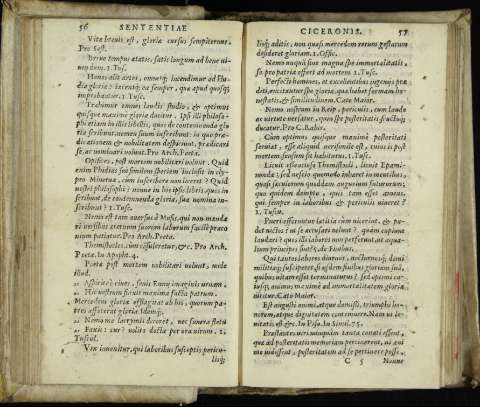 56 SENTENTIAE
Vita breuis est, gloriæ cursus sempiternus.
Pro Sest.
Breue tempus ætatis, satis longum ad bene ui-
uendum. 1. Tusc.
Honos alit artes, omnesq; incendimur ad stu-
dia gloria: iacentq; ea semper, quæ apud quosq;
improbantur. 1. Tusc.
Trahimur omnes laudis studio, & optimus
quisque maximè gloria ducitur. Ipsi illi philoso-
phi etiam in illis libellis, quos de contemnenda glo-
ria scribunt, nomen suum inscribunt: in quo præ-
dicationem & nobilitatem despiciunt, prædicari
se, ac nominari uolunt. Pro Arch. Poeta.
Opifices, post mortem nobilitari uolunt. Quid
enim Phidias sui similem speciem inclusit in cly-
peo Mineruæ, cum inscribere non liceret? Quid
nostri philosophi? nonne in his ipsis libris, quos in
scribunt, de contemnenda gloria, sua nomina in-
scribunt? 1. Tusc.
Nemo est tam auersus à Musis, qui non manda
ri uersibus æternum suorum laborum facilè præco
nium patiatur. Pro Arch. Poeta.
Themistocles, cùm ex eo quæreretur, &c. Pro Arch.
Poeta. In Apopht. 4.
Poetæ post mortem nobilitari uolunt, unde
illud.
„ Aspicite ô ciues, senis Ennij imaginis urnam,
„ Hic uestrûm pinxit maxima facta patrum.
Mercedem gloriæ efflagitat ab his, quorum pa-
tres affecerat gloria: Idemq;,
„ Nemo me lacrymis decoret, nec funera fletu
„ Faxit: cur? uolito docta per ora uirum. 1.
Tuscul.
Vix inuenitur, qui laboribus susceptis, pericu-
lisq;
CICERONIS. 57
lisq; aditis, non quasi mercedem rerum gestarum
desideret gloriam. 1. Offic.
Nemo unquā sine magna spe immortalitatis,
se pro patria offeret ad mortem. 1. Tusc.
Perfecti homines, et excellentibus ingenijs præ
diti, excitantur spe gloriæ, quæ habet formam ho-
nestatis, & similitudinem. Cato Maior.
Nemo nostrûm in Rep. periculis, cum laude
ac uirtute uersatur, quin spe posteritatis, fructuq;
ducatur. Pro C. Rabir.
Cùm optimus quisque maximè posteritati
seruiat, esse aliquid uerisimile est, cuius is post
mortem sensum sit habiturus. 1. Tusc.
Licuit esse otioso Themistocli, licuit Epami-
nondæ: sed nescio quomodo inhæret in mentibus,
quasi sæculorum quoddam augurium futurorum;
quo quidem dempto, quis tam esset amens,
qui semper in laboribus & periculis uiueret?
1. Tuscu.
Pueri efferuntur lætitia cùm uicerint, & pu-
det uictos: ut se accusari nolunt? quàm cupiunt
laudari? quos illi labores non perferunt, ut æqua-
lium principes sint? 5. de Finibus.
Qui tantos labores diurnos, nocturnosq; domi
militiæq; susciperet, si ijsdem finibus gloriam suā,
quibus uitam esset terminaturus? sed optimi cu-
iusq; animus maximè ad immortalitatem gloriæ
nititur. Cato Maior.
Est angusti animi, atque demissi, triumphi ho-
norem, atque dignitatem contemnere. Nam ut le-
uitatis est &c. In Piso. In Simil. 75.
Præstantes uiri nunquam tanta conati essent,
quæ ad posteritatis memoriam pertinerent, ni ani
mo uidissent, posteritatem ad se pertinere posse.
C 5 Nonne